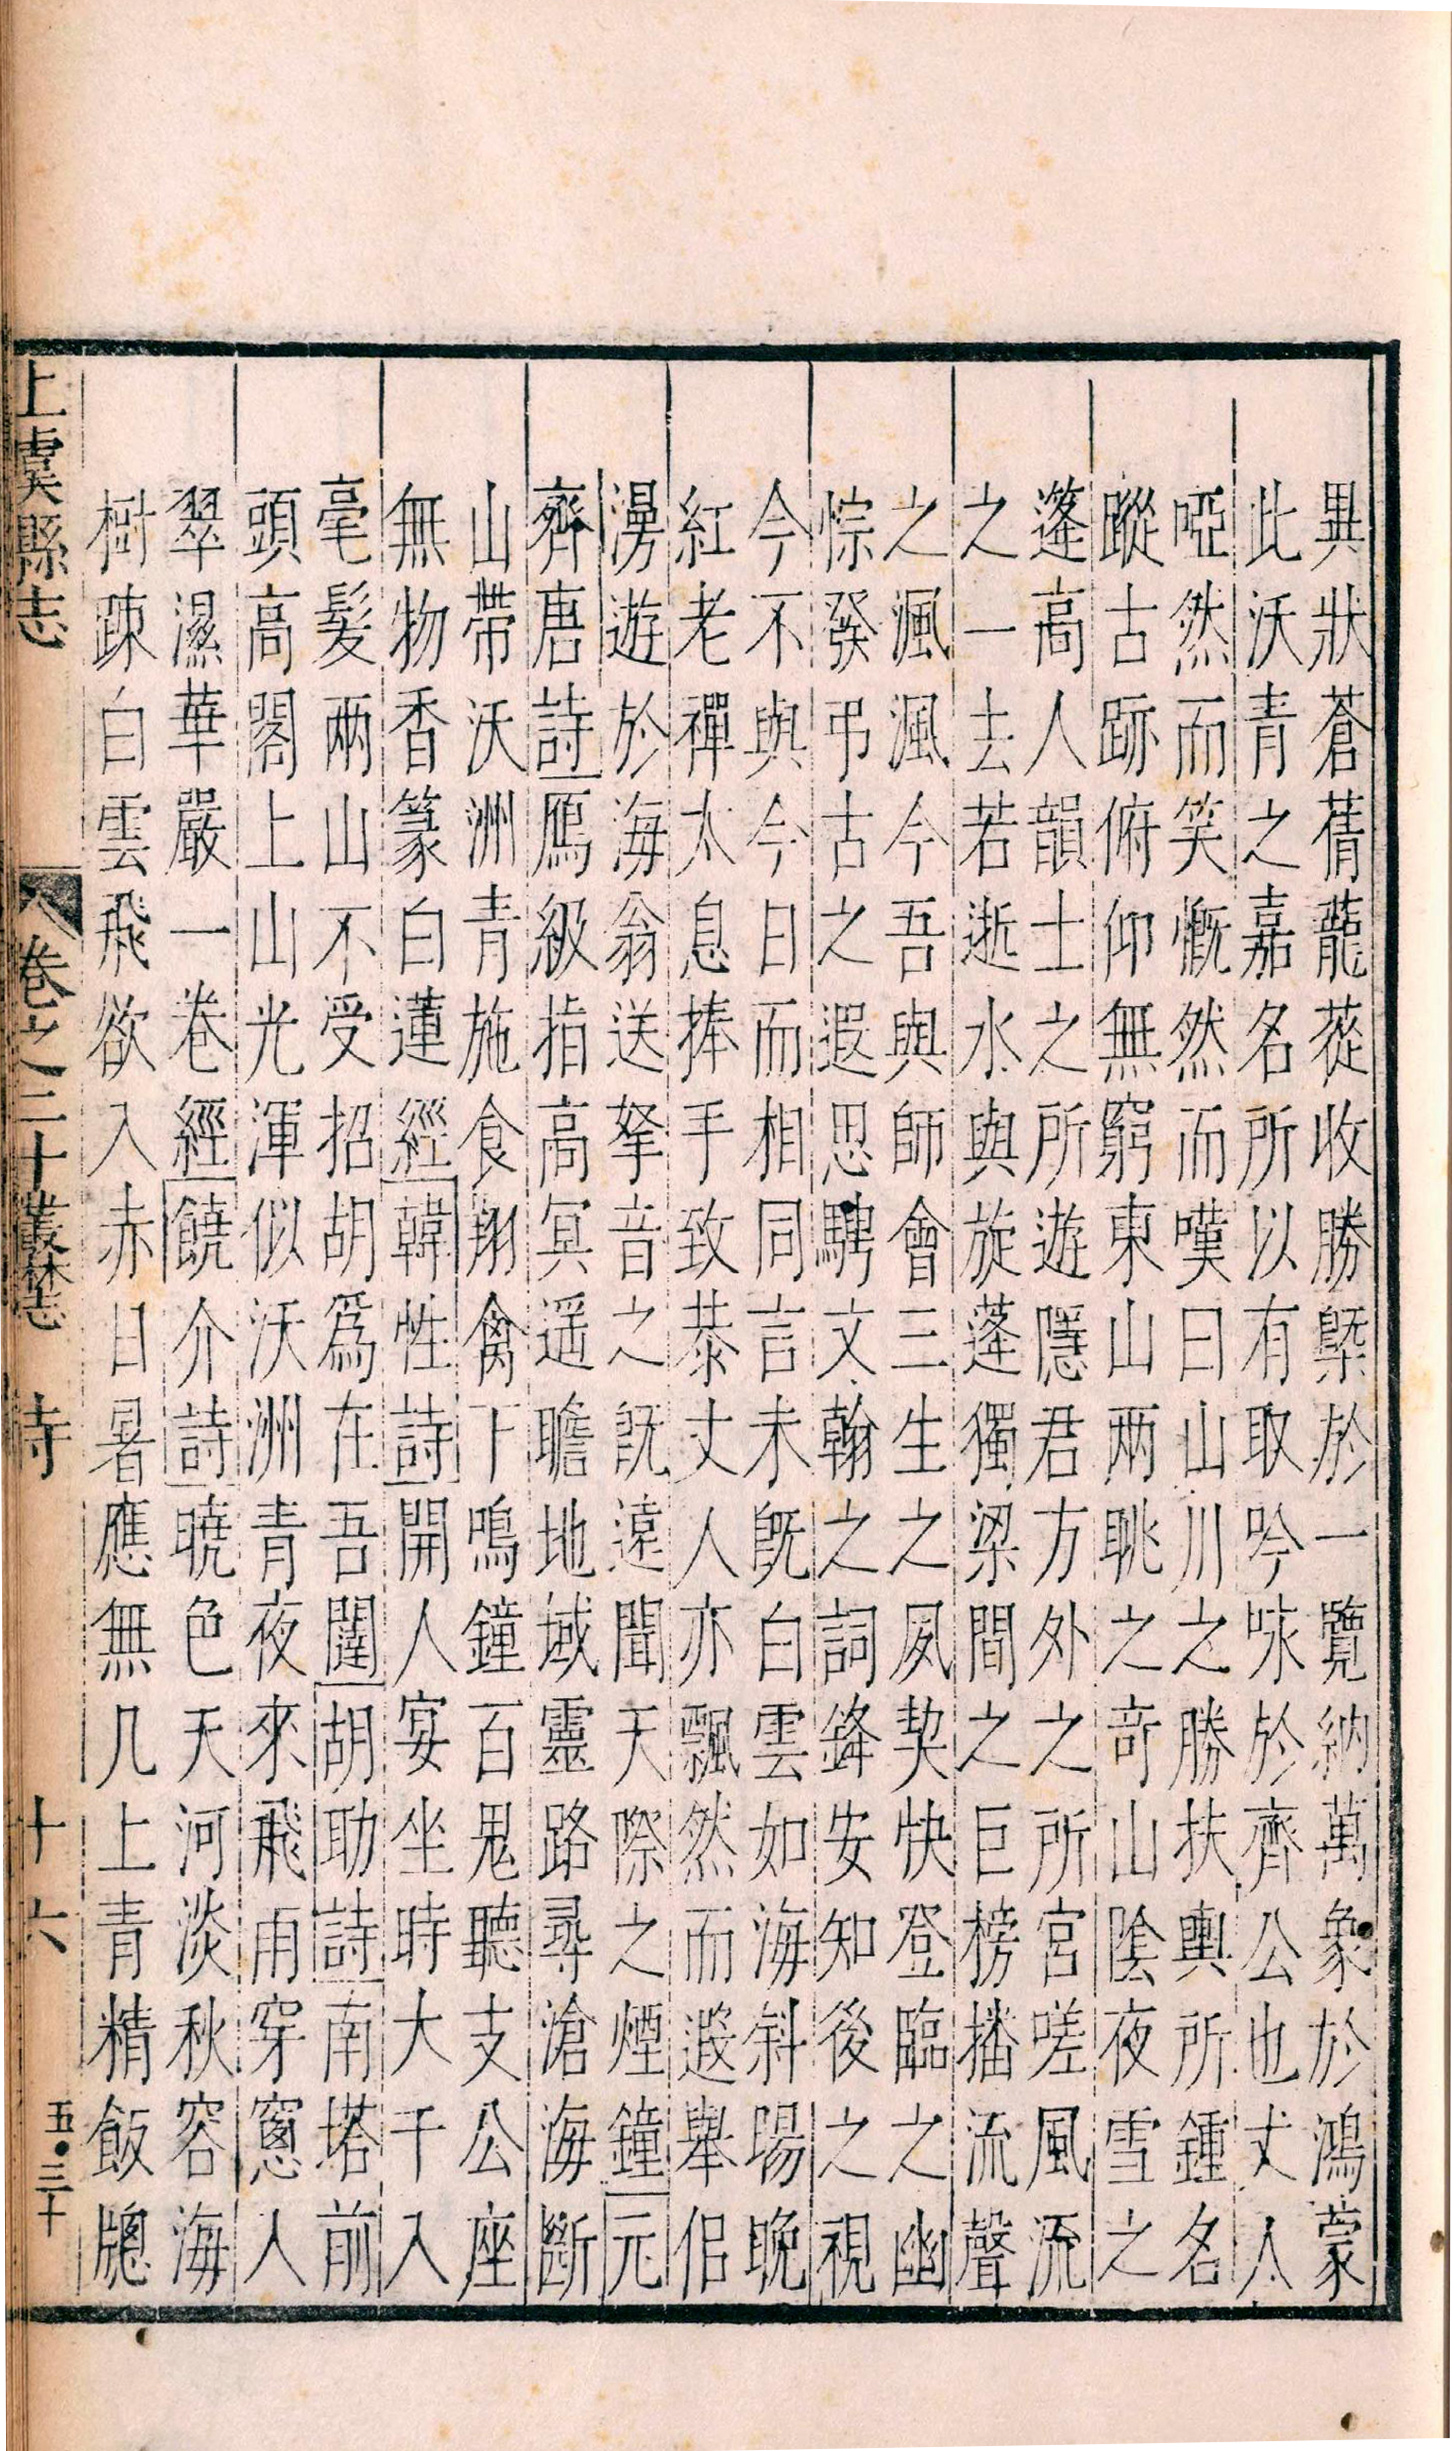 異狀蒼蒨蘢蓯收勝槩於一覽納萬象於鴻蒙
此沃青之嘉名所以有取吟咏於齊公也丈人
啞然而笑慨然而嘆曰山川之勝扶輿所鍾名
蹤古跡俯仰無窮東山兩眺之奇山陰夜雪之
蓬高人韻士之所遊隱君方外之所宮嗟風流
之一去若逝水與旋蓬獨梁間之巨榜播流聲
之渢渢今吾與師會三生之夙契快登臨之幽
悰發弔古之遐思騁文翰之詞鋒安知後之視
今不與今日而相同言未既白雲如海斜陽晚
紅老禪太息捧手致恭丈人亦飄然而遐舉侶
漫遊於海翁送拏音之既遠聞天際之煙鐘元
齊唐詩鴈級指高冥遥瞻地域靈路尋滄海斷
山帶沃洲青施食翔禽下鳴鐘百鬼聽支公座
無物香篆白蓮經韓性詩開人宴坐時大千入
毫髮兩山不受招胡爲在吾闥胡助詩南塔前
頭高閣上山光渾似沃洲青夜來飛雨穿窻人
翠濕華嚴一卷經饒介詩曉色天河淡秋容海
樹疎白雲飛欲入赤日暑應無几上青精飯牕
上虞縣志 卷之三十 叢林志 寺 十六 五·三十